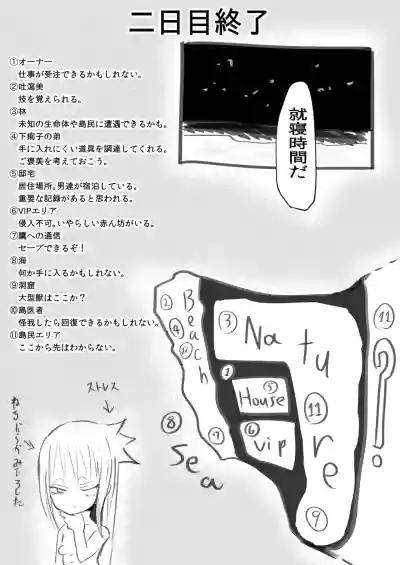 二日目終了
①オーナー
仕事が受注できるかもしれない。
②吐瀉美
技を覚えられる。
③林
未知の生命体や島民に遭遇できるかも。
④下痢子の弟
手に入れにくい道具を調達してくれる。
ご褒美を考えておこう。
⑤邸宅
居住場所。男達が宿泊している。
重要な記録があると思われる。
⑥VIPエリア
侵入不可。いやらしい赤ん坊がいる。
⑦鷹への通信
セーブできるぞ！
⑧海
何か手に入るかもしれない。
⑨洞窟
大型獣はここか？
⑩島医者
怪我したら回復できるかもしれない。
⑪島民エリア
ここから先はわからない。
就寝時間だ
② Beach
④
⑦
③ Nature
① 
⑤
House
⑥
vip
⑪
⑨
⑧ Sea
⑪
?
ストレス